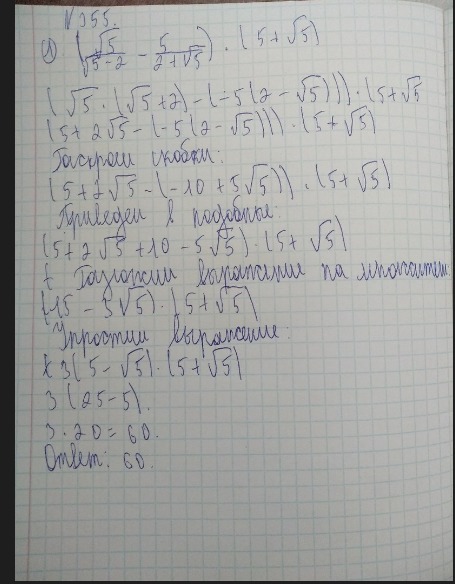 N 255.
1) (√5/(√5-2) - 5/(2+√5)) · (5+√5)
(√5 · (√5+2) - (-5(2-√5))) · (5+√5
(5+2√5 - (-5(2-√5))) · (5+√5)
Раскрош скобки:
(5+2√5 - (-10+5√5)) · (5+√5)
Приведем в подобные:
(5+2√5+10-5√5) · (5+√5)
Разложим выражение на множители:
(15-3√5) · (5+√5)
Упростим выражение:
3(5-√5) · (5+√5)
3(25-5).
3·20=60.
Ответ: 60.